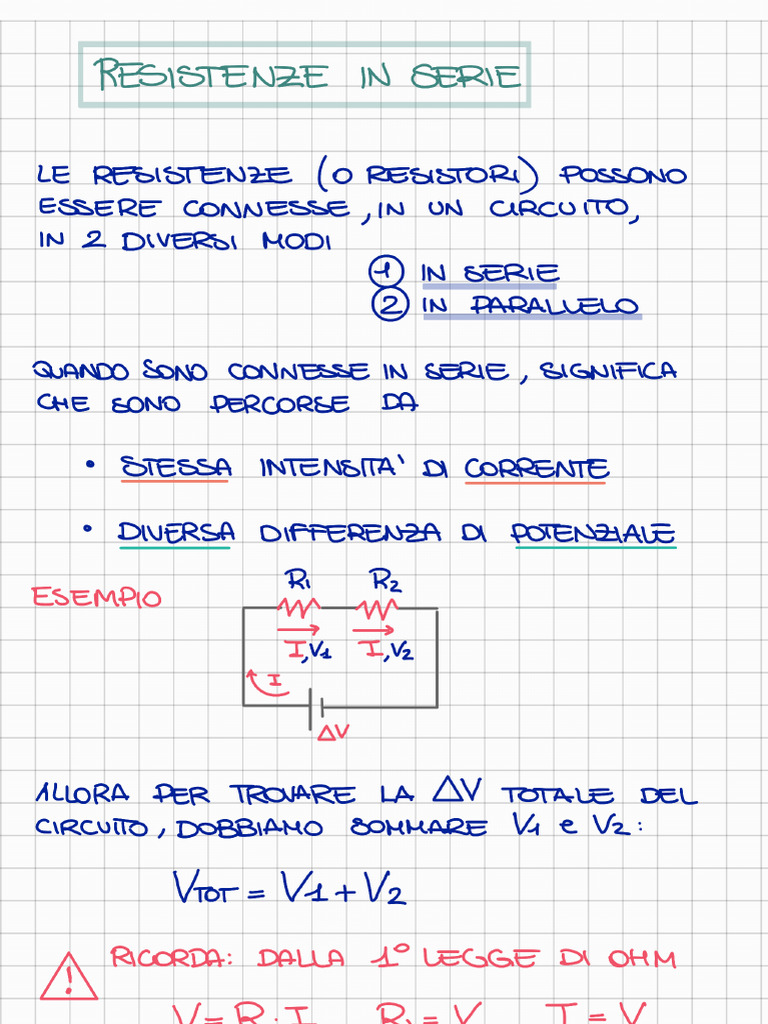 RESISTENZE IN SERIE
LE RESISTENZE (O RESISTORI) POSSONO
ESSERE CONNESSE, IN UN CIRCUITO,
IN 2 DIVERSI MODI
1 IN SERIE
2 IN PARALLELO
QUANDO SONO CONNESSE IN SERIE, SIGNIFICA
CHE SONO PERCORSE DA
• STESSA INTENSITA' DI CORRENTE
• DIVERSA DIFFERENZA DI POTENZIALE
ESEMPIO
R1 R2
I,V1 I,V2
I
ΔV
ALLORA PER TROVARE LA ΔV TOTALE DEL
CIRCUITO, DOBBIAMO SOMMARE V1 e V2:
VTOT = V1 + V2
! RICORDA: DALLA 1° LEGGE DI OHM
V = R · I R1 = V I = V